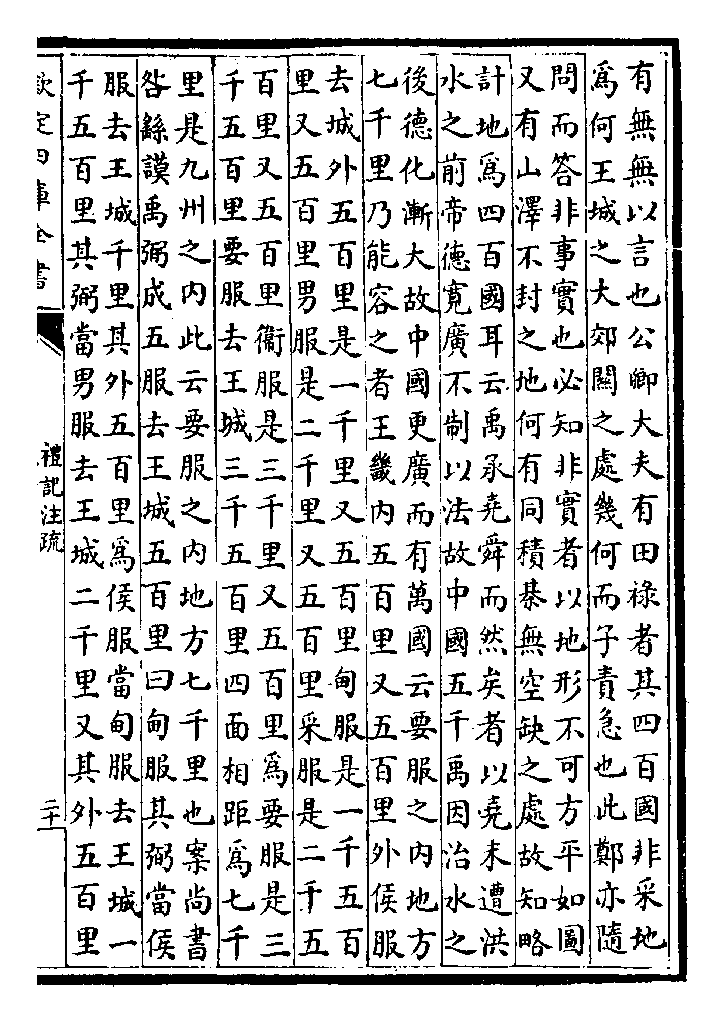 有無無以言也公卿大夫有田祿者其四百國非采地
爲何王城之大郊關之處幾何而子責急也此鄭亦隨
問而答非事實也必知非實者以地形不可方平如圖
又有山澤不封之地何有同積棊無空缺之處故知略
計地爲四百國耳云禹承堯舜而然矣者以堯未遭洪
水之前帝德寛廣不制以法故中國五千禹因治水之
後德化漸大故中國更廣而有萬國云要服之内地方
七千里乃能容之者王畿内五百里又五百里外侯服
去城外五百里是一千里又五百里甸服是一千五百
里又五百里男服是二千里又五百里采服是二千五
百里又五百里衞服是三千里又五百里爲要服是三
千五百里要服去王城三千五百里四面相距爲七千
里是九州之内此云要服之内地方七千里也案尚書
咎繇謨禹弼成五服去王城五百里曰甸服其弼當侯
服去王城千里其外五百里爲侯服當甸服去王城一
千五百里其弼當男服去王城二千里又其外五百里
欽定四庫全書
禮記注疏
二十